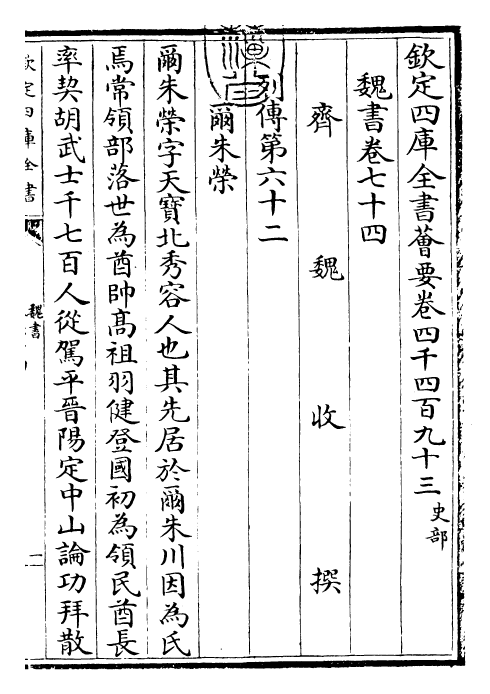 欽定四庫全書薈要卷四千四百九十三 史部
魏書卷七十四
齊 魏 收 撰
列傳第六十二
爾朱榮
爾朱榮字天寶北秀容人也其先居於爾朱川因為氏
焉常領部落世為酋帥高祖羽健登國初為領民酋長
率契胡武士千七百人從駕平晉陽定中山論功拜散
欽定四庫全書
魏書